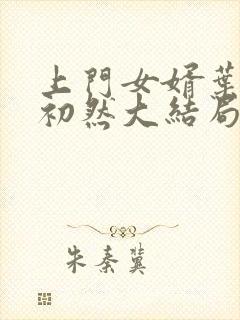 上門女婿葉
初然大結局
朱秦冀